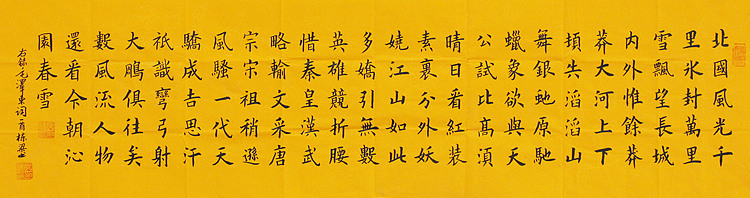 北國風光千
里氷封萬里
雪飄望長城
内外惟餘莽
莽大河上下
頓失滔滔山
舞銀虵原馳
蠟象欲與天
公試比髙須
晴日看紅裝
素裹分外妖
嬈江山如此
多嬌引無數
英雄競折腰
惜秦皇漢武
略輸文采唐
宗宋祖稍遜
風騷一代天
驕成吉思汗
祇識彎弓射
大鵰俱往矣
數風流人物
還看今朝沁
園春雪
右録毛澤東词一首